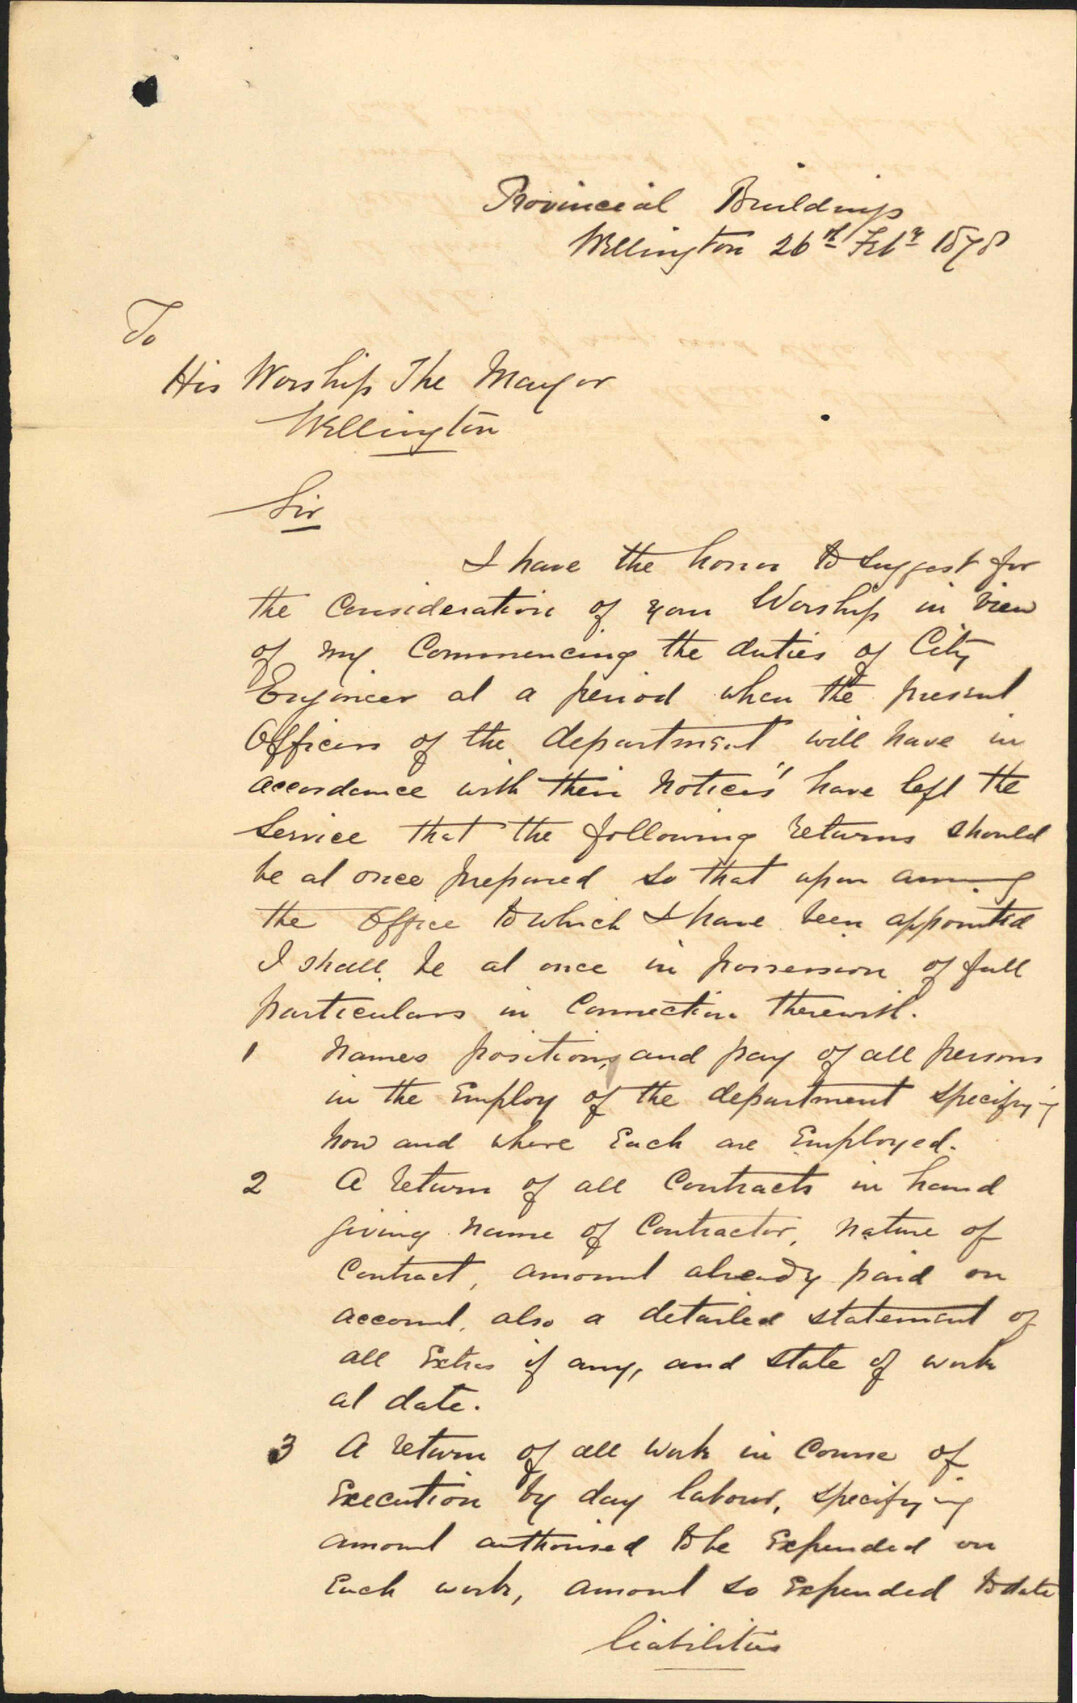 Provincial Buildings
Wellington 26th Feby 1878
To
His Worship The Mayor
Wellington
Sir
I have the honor to suggest for
the Consideration of your Worship in view
of my Commencing the duties of City
Engineer at a period when the present
Officers of the department will have in
accordance with their Notices" have left the
Service that the following returns should
be at once prepared so that upon
the Office to which I have been appointed
I shall be at once in possession of full
particulars in Connection therewith.
1 Names positions, and pay of all persons
in the Employ of the department specifying
how and where Each are Employed.
2 A return of all Contracts in hand
giving name of Contractor, nature of
Contract, amount already paid on
account, also a detailed statement of
all Extras if any, and state of work
at date.
3 A return of all work in Course of
Execution by day labour, specifying
amount authorised to be Expended on
Each work, amount so Expended to date
liabilities